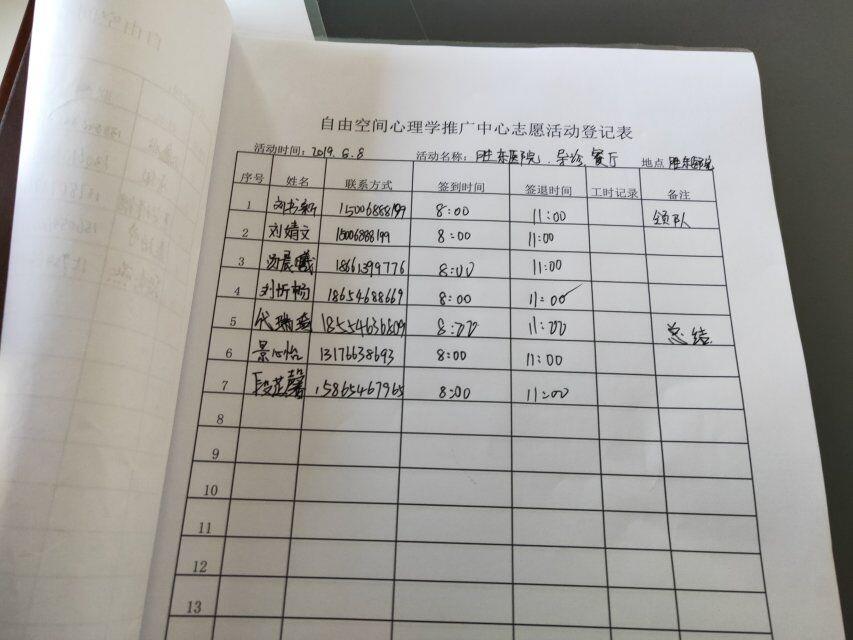 自由空间心理学推广中心志愿活动登记表
活动时间：2019.6.8 活动名称：胜东医院.导诊.餐厅 地点 胜东医院
序号 姓名 联系方式 签到时间 签退时间 工时记录 备注
1 刘书新 15006888199 8:00 11:00 领队
2 刘婧文 15006888199 8:00 11:00
3 晨曦 18661399776 8:00 11:00
4 刘忻畅 18654688669 8:00 11:00
5 代瑞 18554636809 8:00 11:00 总结
6 景心怡 13176638693 8:00 11:00
7 段芷馨 15865467965 8:00 11:00
8
9
10
11
12
13